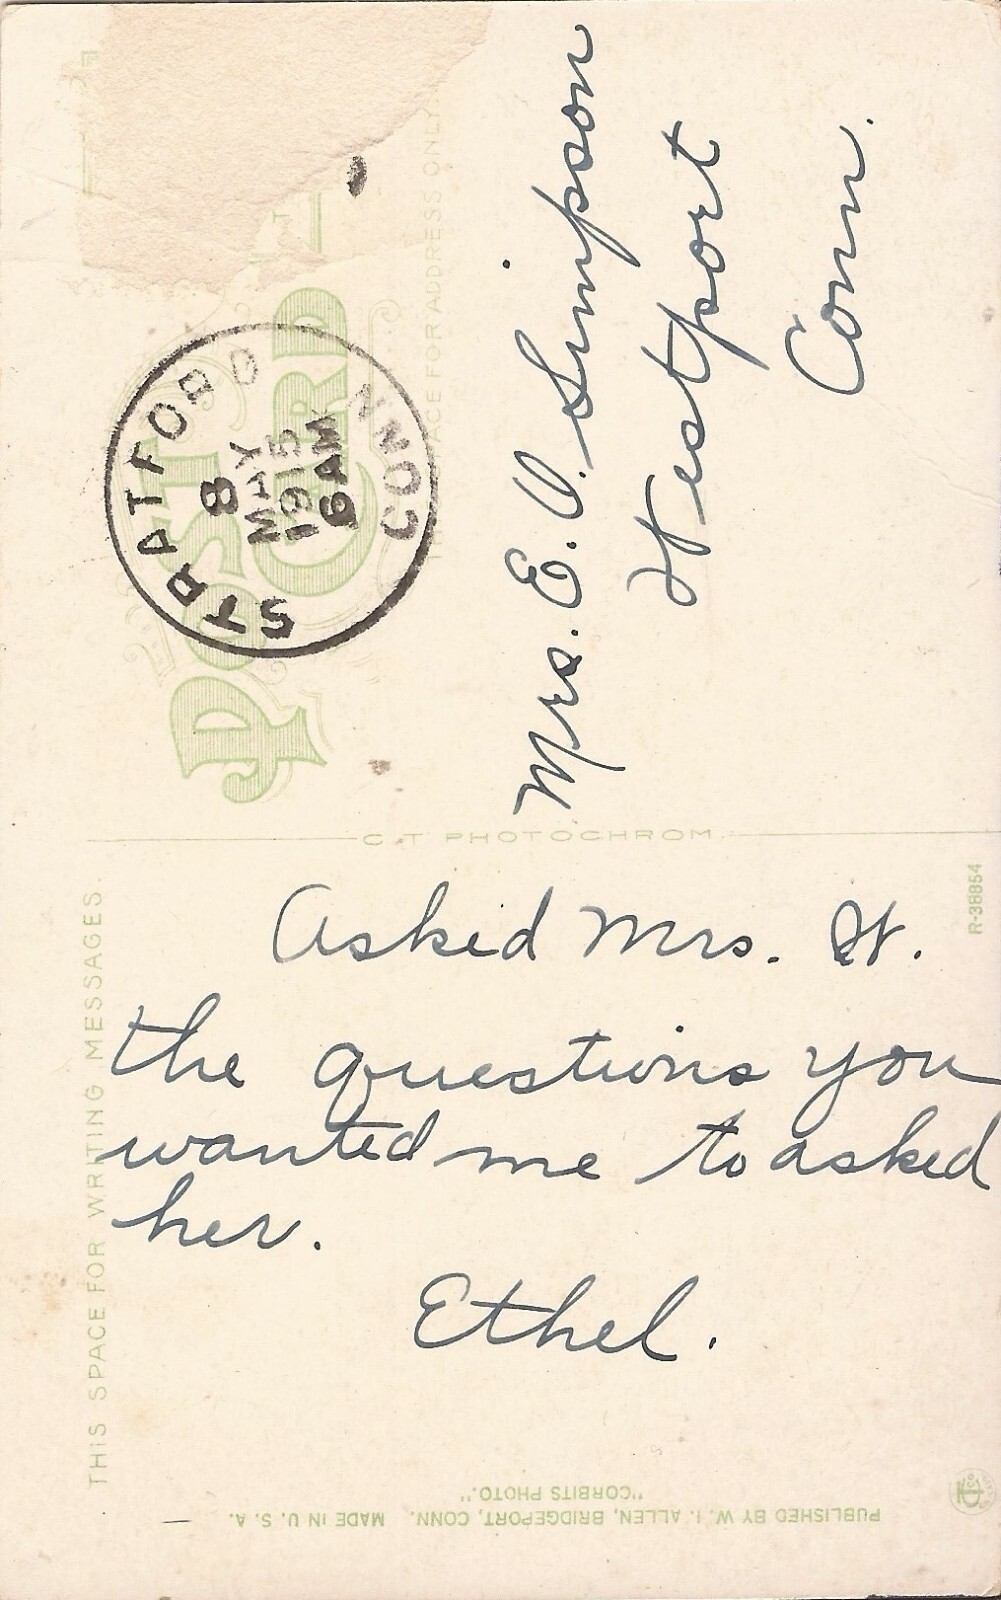 POST CARD
SPACE FOR ADDRESS ONLY
STRATFORD CONN
8
MAY
1915
6 AM
Mrs. E. V. Simpson
Westport
Conn.
C.T. PHOTOCHROM
THIS SPACE FOR WRITING MESSAGES.
R-38854
Asked Mrs. W.
the questions you
wanted me to asked
her.
Ethel.
PUBLISHED BY W. I. ALLEN, BRIDGEPORT, CONN. MADE IN U. S. A.
"CORBITS PHOTO."